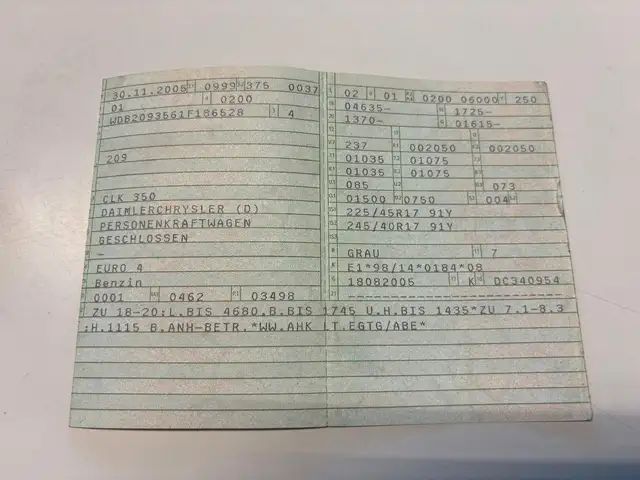 30.11.2005 0999 375 0037
01 0200
WDB2093561F186528 4
209
CLK 350
DAIMLERCHRYSLER (D)
PERSONENKRAFTWAGEN
GESCHLOSSEN
–
EURO 4
Benzin
0001 0462 03498
02 01 0200 06000 250
04635– 1725–
1370– 01615–
237 002050 002050
01035 01075
01035 01075
085 073
01500 0750 004
225/45R17 91Y
245/40R17 91Y
GRAU 7
E1*98/14*0184*08
18082005 K DC340954
ZU 18-20:L.BIS 4680,B.BIS 1745 U.H.BIS 1435*ZU 7.1-8.3
:H.1115 B.ANH-BETR.*WW.AHK LT.EGTG/ABE*